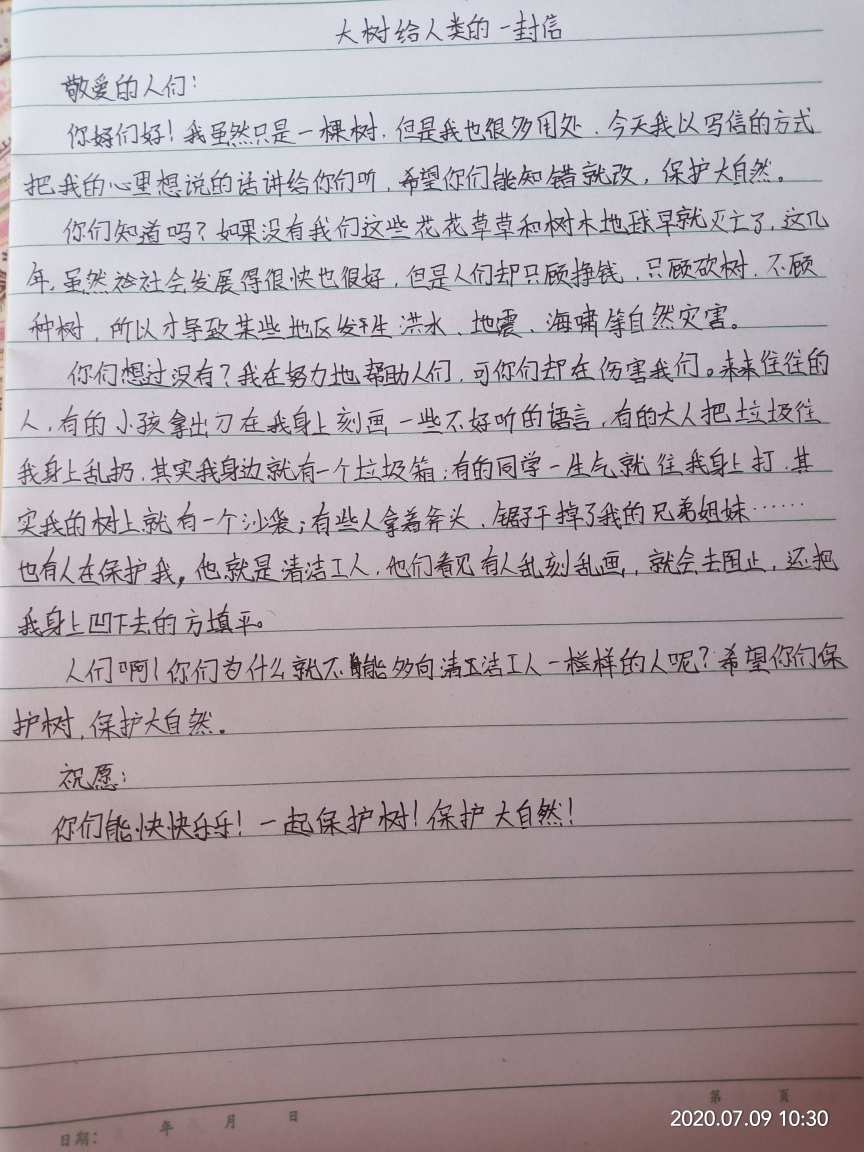 大树给人类的一封信
敬爱的人们：
你好们好！我虽然只是一棵树，但是我也很多用处，今天我以写信的方式
把我的心里想说的话讲给你们听，希望你们能知错就改，保护大自然。
你们知道吗？如果没有我们这些花花草草和树木地球早就灭亡了，这几
年，虽然社会发展得很快也很好，但是人们却只顾挣钱，只顾砍树，不顾
种树，所以才导致某些地区发生洪水、地震、海啸等自然灾害。
你们想过没有？我在努力地帮助人们，可你们却在伤害我们。来来往往的
人，有的小孩拿出刀在我身上刻画一些不好听的语言，有的大人把垃圾往
我身上乱扔，其实我身边就有一个垃圾箱；有的同学一生气就往我身上打，其
实我的树上就有一个沙袋；有些人拿着斧头、锯子干掉了我的兄弟姐妹……
也有人在保护我，他就是清洁工人，他们看见有人乱刻乱画，就会去阻止，还把
我身上凹下去的方填平。
人们啊！你们为什么就不能够向清洁工人一样的人呢？希望你们保
护树，保护大自然。
祝愿：
你们能快快乐乐！一起保护树！保护大自然！
第 页
2020.07.09 10:30
日期： 年 月 日